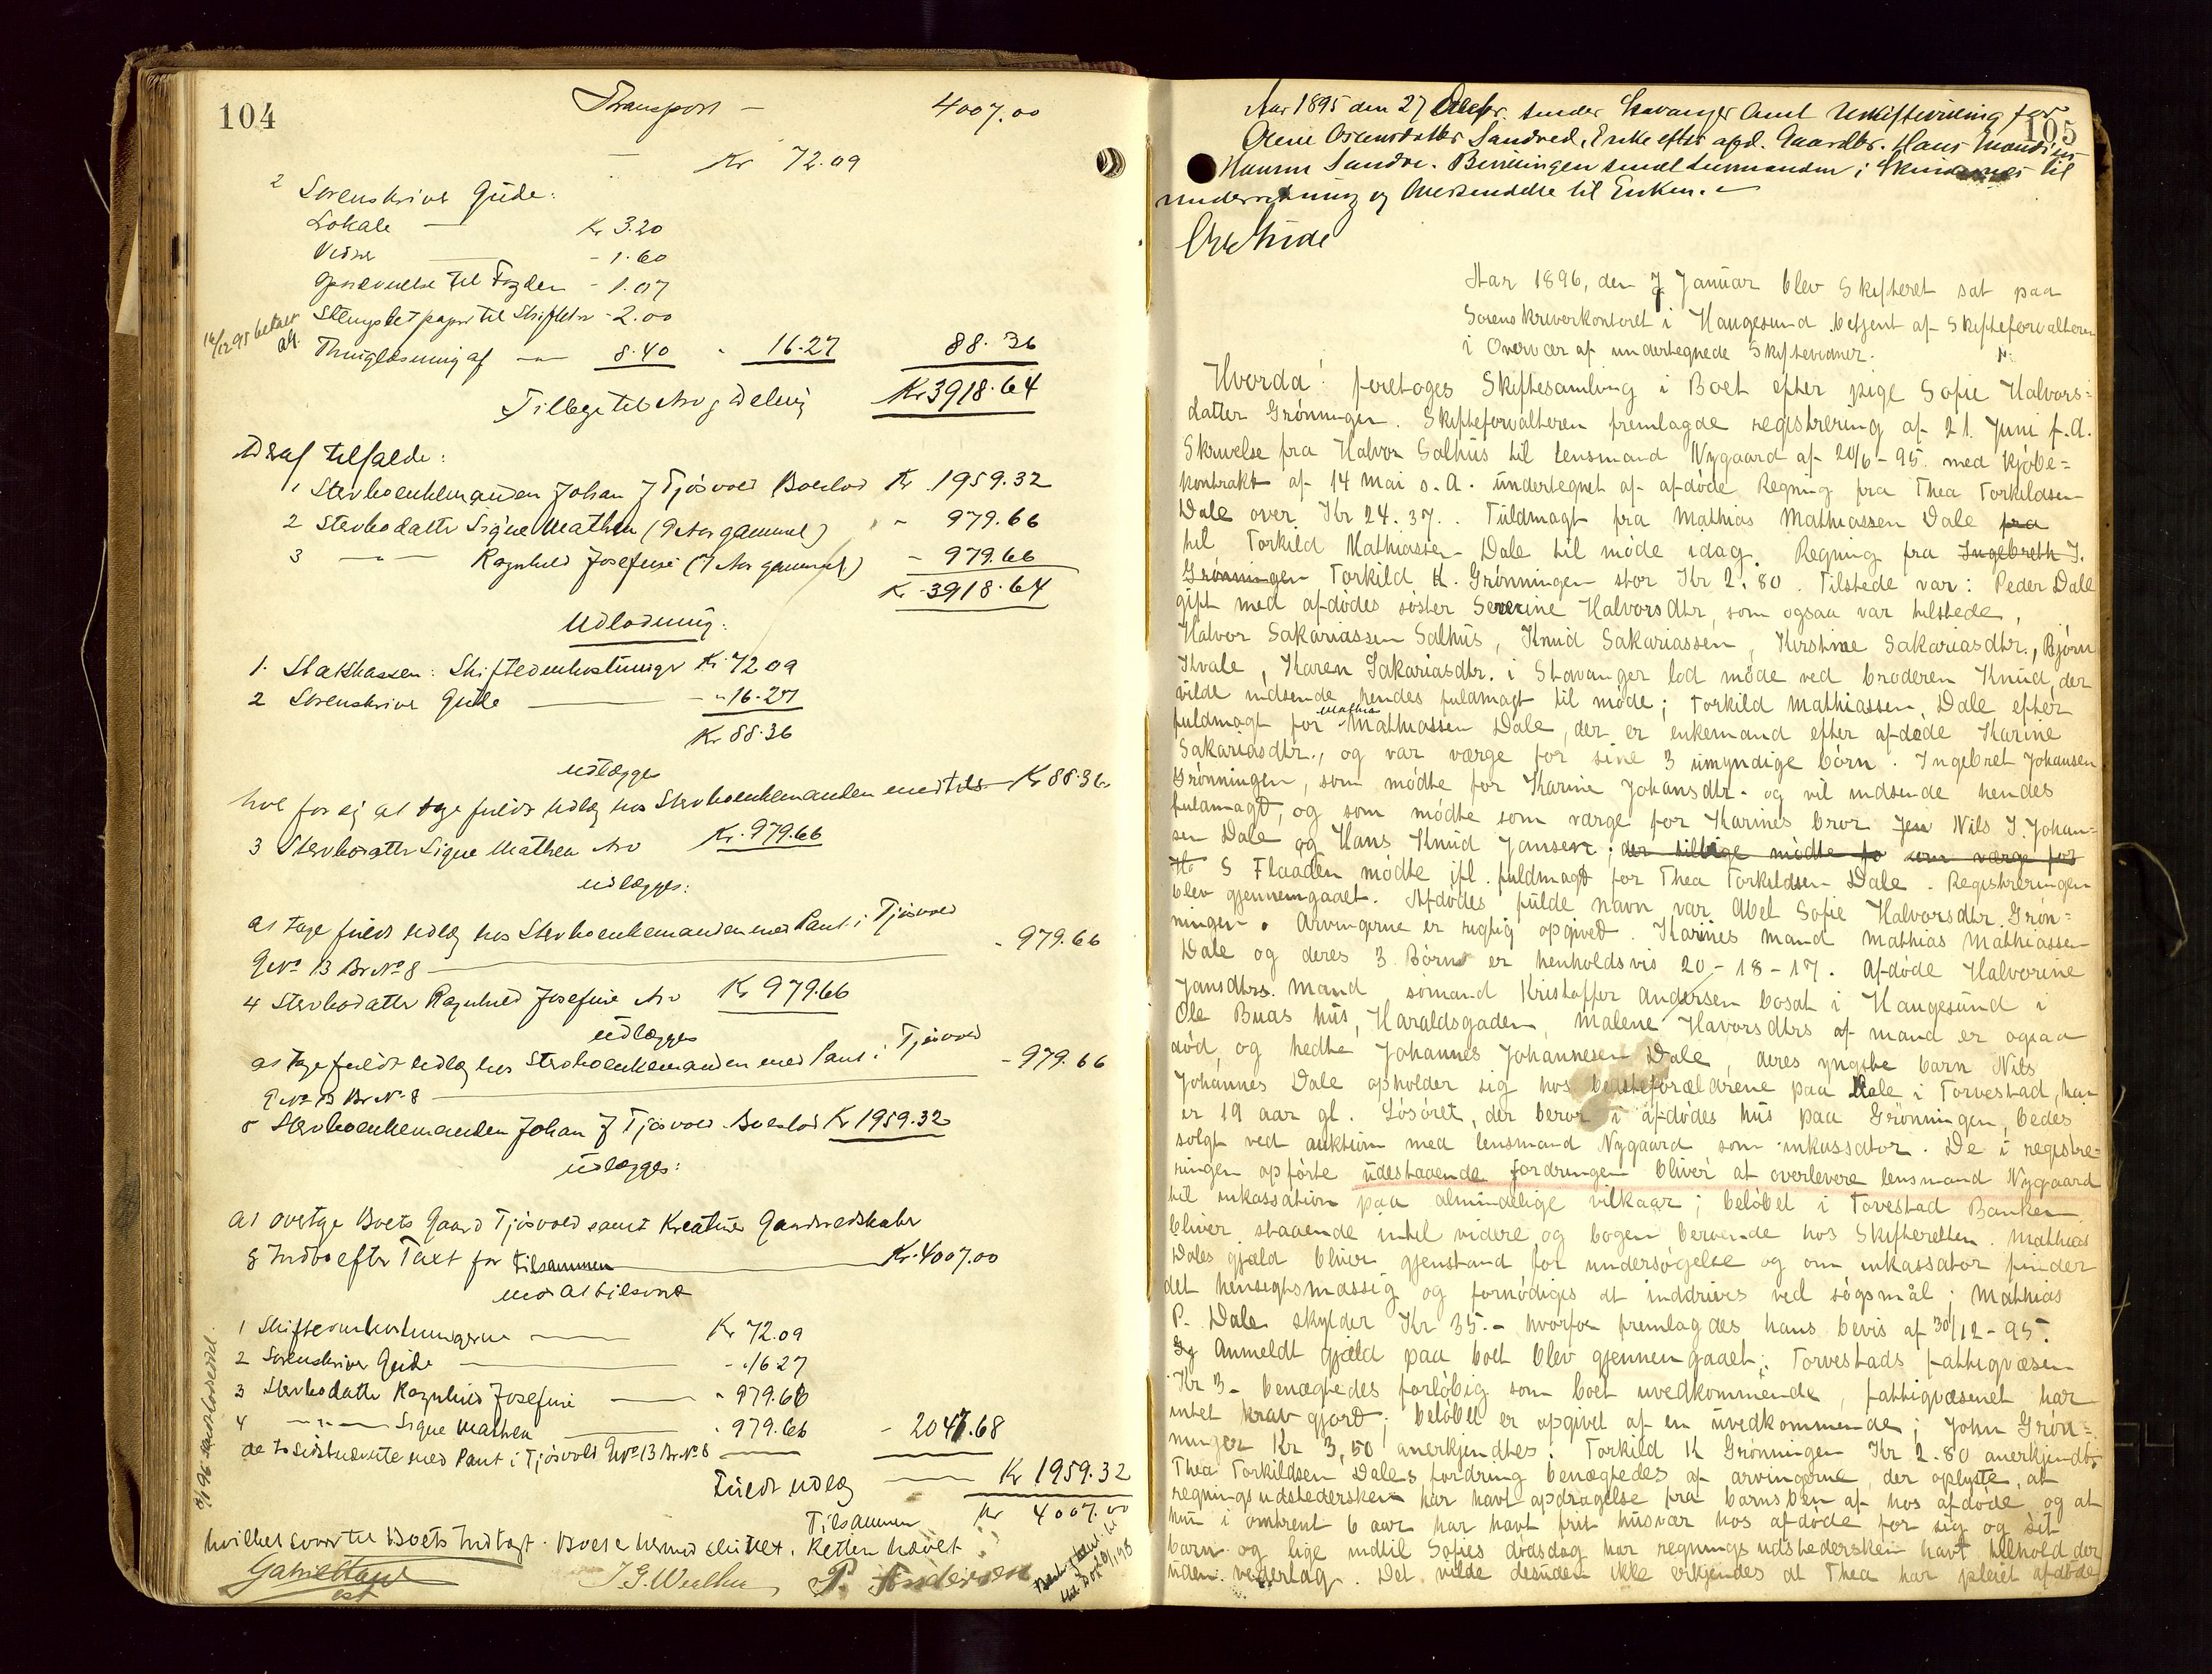 104
Transport - 4007.00
- Kr 72.09
2 Sorenskriver Gude:
Lokale — Kr 3.20
Vidner — - 1.60
Gjenevuelse til Fogden - 1.07
Stemplet papir til Skiftebr - 2.00
16/12 95 betalt
Thinglæsning af — 8.40 - 16.27 88.36
Tilbage til Arv og Deling Kr 3918.64
Deraf tilfalde:
1 Sterboenkemanden Johan J Tjösvold Boeslod Kr 1959.32
2 Sterbodattr Signe Mathea (9 Aar gammel) - 979.66
3 — " — Ragnhild Josefine (7 Aar gammel) - 979.66
Kr 3918.64
Udlodning:
1. Statskassen: Skifteomkostninger Kr 72.09
2 Sorenskriver Gude — - 16.27
Kr 88.36
udlægges
hver for sig at tage fuldt Udlæg hos Sterboenkemanden med tils. Kr 88.36
3 Sterbodattr Signe Mathea Arv Kr. 979.66
udlægges:
at tage fuldt Udlæg hos Sterboenkemanden med Pant i Tjösvold
G No 13 Br No 8 — - 979.66
4 Sterbodattr Ragnhild Josefine Arv Kr 979.66
udlægges
at tage fuldt Udlæg hos Sterboenkemanden med Pant i Tjösvold
G No 13 Br No 8 — - 979.66
5 Sterboenkemanden Johan J Tjösvold Boeslod Kr 1959.32
udlægges:
at overtage Boets Gaard Tjösvold samt Kreaturer Gaardsredskaber
& Indbo efter Taxt for tilsammen — Kr. 4007.00
mod at tilsvare
1 Skifteomkostningerne — Kr 72.09
2 Sorenskriver Gude — - 16 27
3 Sterbodattr Ragnhild Josefine — " 979.66
4 — " — Signe Mathea " 979.66 - 2047.68
de to sidstnævnte med Pant i Tjösvold G No 13 Br. No 8
Fuldt Udlæg — Kr 1959.32
Tilsammen Kr 4007.00
hvilket svarer til Boets Indtægt. Boet er hermed sluttet. Retten hævet
Gabriel
cst
J. G. Wealhu
P. Andersen
105
Aar 1895 den 27 Decbr. sender Stavanger Amt Uskiftevilling for
Olene Osmundsdatter Sandved, Enke efter afd. Gaardbr. Hans Mandius
Hansen Sandve. Bevillingen sendt Lensmanden i Skudenes til
underretning og Oversendelse til Enken. -
Chr Gude
Aar 1896, den 7 Januar blev Skifteret sat paa
Sorenskriverkontoret i Haugesund betjent af Skifteforvalteren
i Overvær af undertegnede Skiftevidner.
Hvorda: foretoges Skiftesamling i Boet efter pige Sofie Halvors=
datter Grønningen. Skifteforvalteren fremlagde registrering af 21. Juni f.A.
Skrivelse fra Halvor Salhus til lensmand Nygaard af 20/6-95 med Kjøbe=
kontrakt af 14 mai s.A. undertegnet af afdøde Regning fra Thea Torkildsen
Dale over Kr 24.37. Fuldmagt fra Mathias Mathiassen Dale fra
til Torkild Mathiassen Dale til møde idag. Regning fra Ingebreth J.
Grønningen Torkild K. Grønningen stor Kr 2.80. Tilstede var: Peder Dale
gift med afdødes søster Severine Halvorsdtr, som ogsaa var tilstede,
Halvor Sakariassen Salhus, Knud Sakariassen, Kirstine Sakariasdtr., Bjørn
Kvale, Karen Sakariasdtr. i Stavanger lod møde ved broderen Knud, der
vilde indsende hendes fuldmagt til møde; Torkild Mathiassen Dale efter
fuldmagt for Mathias Mathiassen Dale, der er enkemand efter afdøde Karine
Sakariasdtr., og var værge for sine 3 umyndige børn. Ingebret Johansen
Grønningen, som mødte for Karine Johansdtr. og vil indsende hendes
fuldmagt, og som mødte som værge for Karines bror Jen Nils J. Johan=
sen Dale og Hans Knud Jansen; der tillige mødte fo som værge for
H S Flaaden mødte ifl. fuldmagt for Thea Torkildsen Dale. Registreringen
blev gjennemgaaet. Afdødes fulde navn var Abel Sofie Halvorsdtr. Grøn=
ningen. Arvingerne er rigtig opgivet. Karines mand Mathias Mathiassen
Dale og deres 3 Børn er henholdsvis 20-18-17. Afdøde Halvorine
Jansdtrs. mand sømand Kristoffer Andersen bosat i Haugesund i
Ole Buas hus, Haraldsgaden, Malene Havorsdtrs af mand er ogsaa
død, og hedte Johannes Johannesen Dale, deres yngste barn Nils
Johannes Dale opholder sig hos bedsteforældrene paa Dale i Torvestad, han
er 19 aar gl. Løsøret, der beror i afdødes hus paa Grønningen, bedes
solgt ved auktion med lensmand Nygaard som inkassator. De i registre=
ringen opførte udestaaende fordringer bliver at overlevere lensmand Nygaard
til inkassation paa almindelige vilkaar; beløbet i Torvestad Banken
bliver staaende intil videre og bogen beroende hos Skifteretten. Mathias
Dales gjæld bliver gjenstand for undersøgelse og om inkassator finder
det hensigtsmæssig og fornødiges at inddrives ved søgsmål; Mathias
P. Dale skylder Kr 35.- hvorfor fremlagdes hans bevis af 30/12-95.
Anmeldt gjæld paa boet blev gjennemgaaet: Torvestads fattigvæsen
Kr 3.- benægtedes forløbig som boet uvedkommende, fattigvæsenet har
intet krav gjort; beløbet er opgivet af en uvedkommende; John Grøn=
ningen Kr 3,50 anerkjendtes; Torkild K Grønningen Kr 2.80 anerkjendtes
Thea Torkildsen Dales fordring benægtedes af arvingerne, der oplyste, at
regningsudstedersken har havt opdragelse fra barnsben af hos afdøde, og at
hun i omtrent 6 aar har havt frit husvær hos afdøde for sig og sit
barn og lige indtil Sofies dødsdag har regningsudstedersken havt tilhold der
uden vederlag. Det vilde desuden ikke erkjendes at Thea har pleiet afdøde